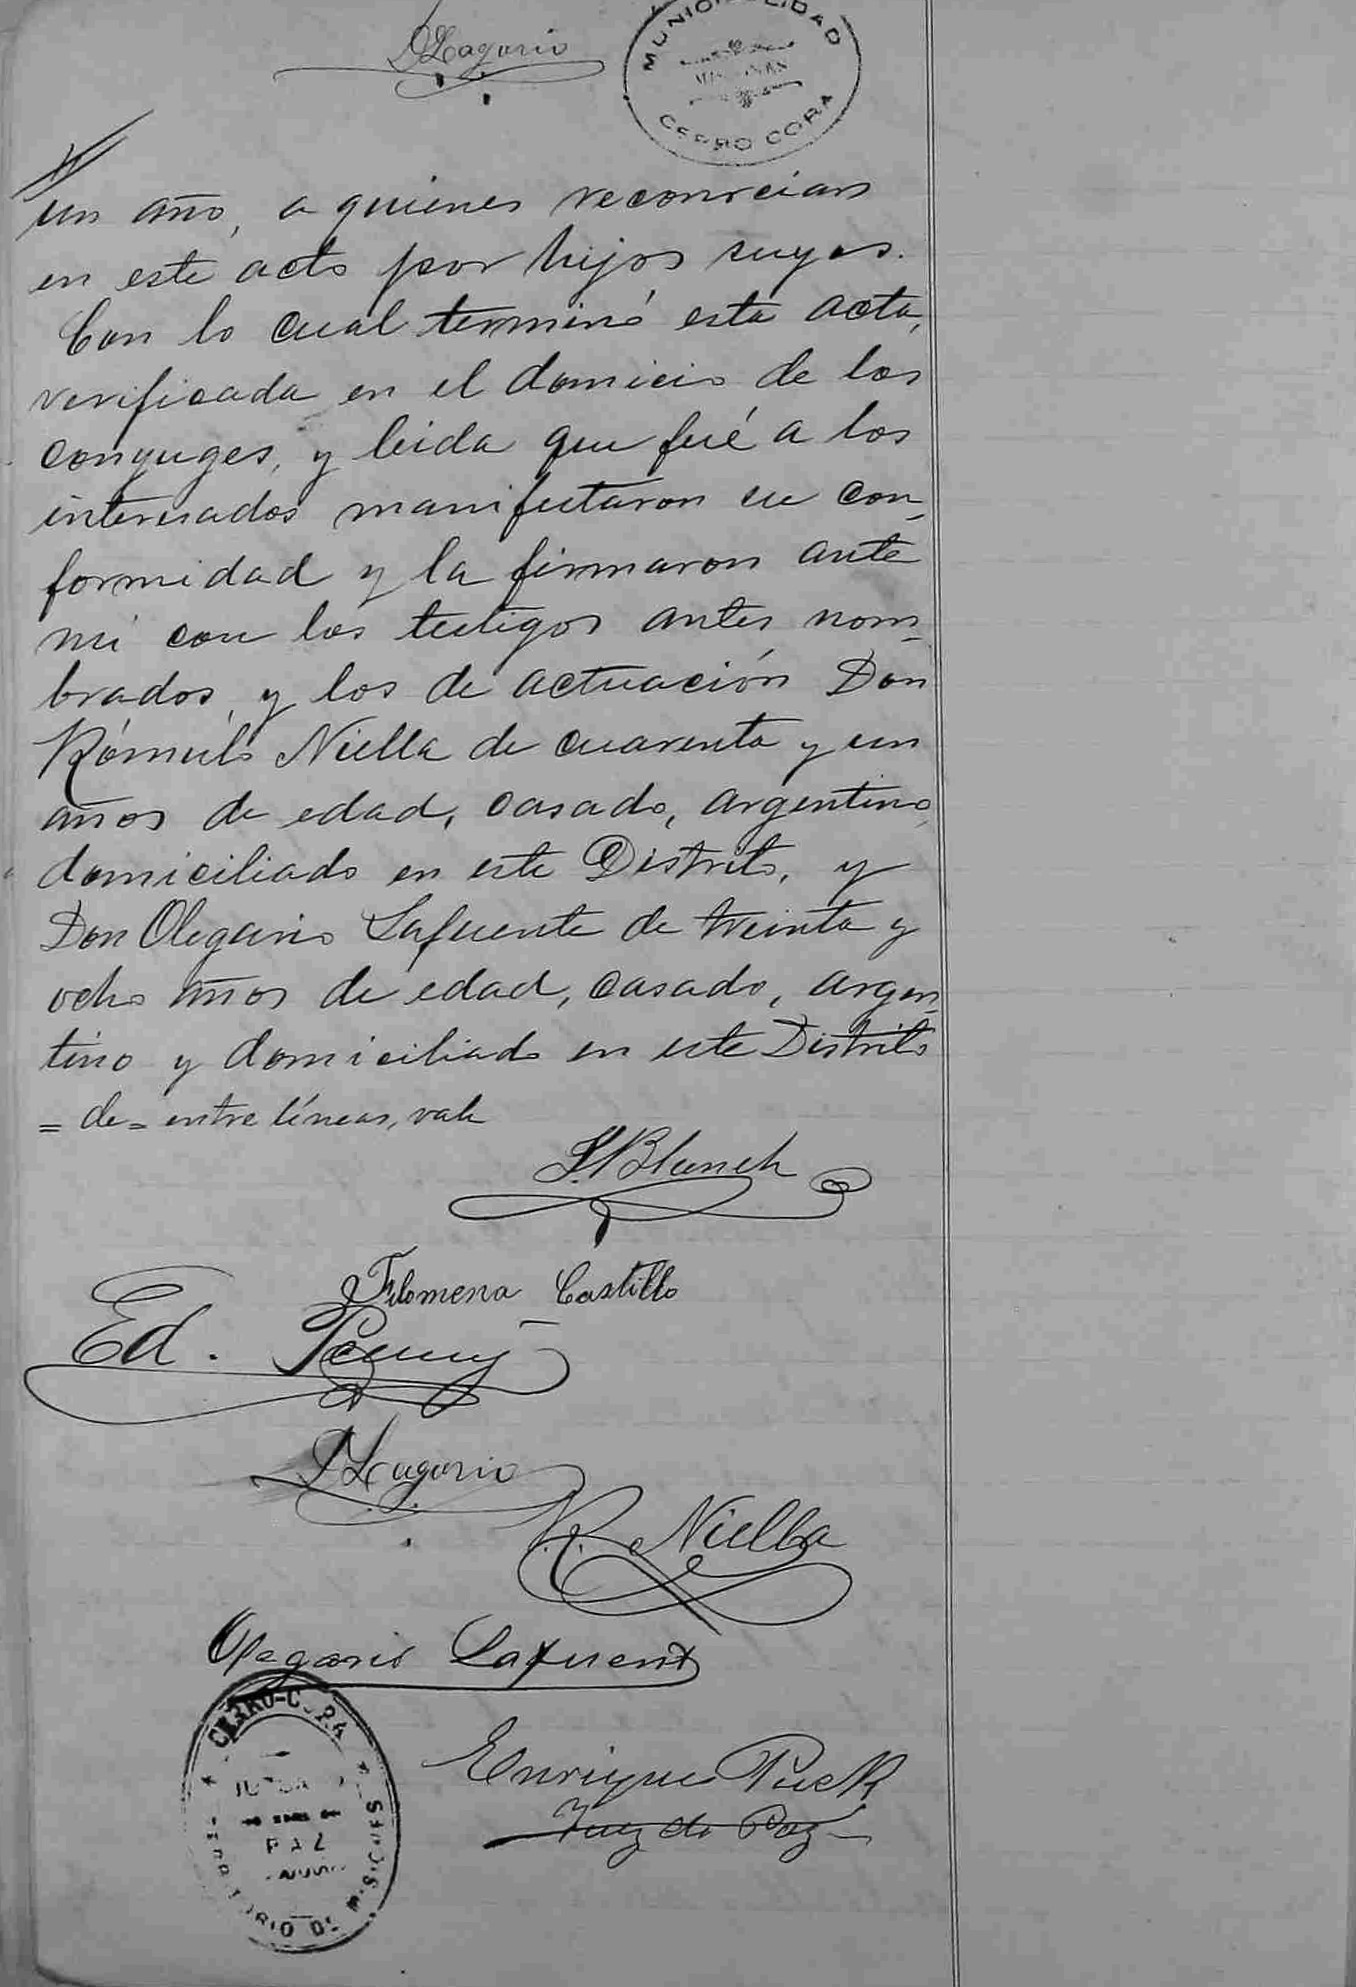 D Lagorio
MUNICIPALIDAD
MISIONES
CERRO CORA
un año, a quienes reconocian
en este acto por hijos suyos.
Con lo cual terminó esta acta,
verificada en el domicio de los
conyuges, y leida que fué a los
interesados manifestaron su con_
formidad y la firmaron ante
mi con los testigos antes nom_
brados, y los de actuación Don
Rómulo Niella de cuarenta y un
años de edad, casado, argentino,
domiciliado en este Distrito, y
Don Olegario Lafuente de treinta y
ocho años de edad, casado, argen_
tino y domiciliado en este Distrito
=de= entre líneas, vale
Blanch
Filomena Castillo
Ed.
D Lagorio
R. Niella
Olegario Lafuente
Enrique Puck
Juez de Paz
CERRO-CORA
JUZGADO
DE
PAZ
TERRITORIO DE MISIONES